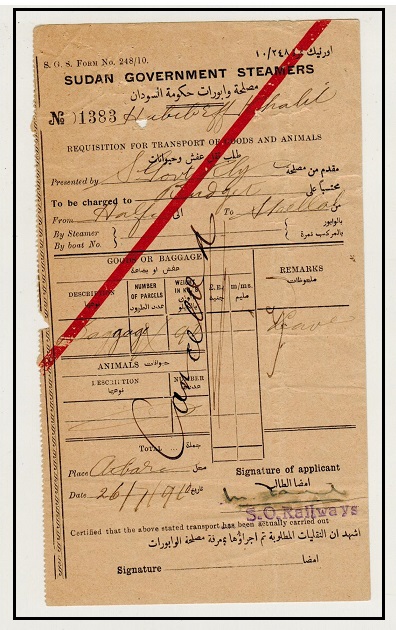 S. G. S. FORM No. 248/10.
اورنيك ١٠/٢٤٨
SUDAN GOVERNMENT STEAMERS
مصلحة وابورات حكومة السودان
№ 1383 Khalil
REQUISITION FOR TRANSPORT OF GOODS AND ANIMALS
طلب عفش وحيوانات
Presented by S. Govt Rly مقدم من مصلحة
To be charged to محتسبا على
From Halfa الى To Shellal من
By Steamer بالوابور
By boat No. بالمركب نمرة
GOODS OR BAGGAGE
عفش او بضاعة
DESCRIPTION NUMBER OF PARCELS عدد الطرود WEIGHT £.E. جنيه m/ms. مليم REMARKS ملحوظات
Baggage Leave
Cancelled
ANIMALS حيوانات
DESCRIPTION نوعها NUMBER عدد
TOTAL ... جملة
Place Atbara محل
Signature of applicant
امضا الطالب
Date 26/7/1910 تاريخ
S.O. Railways
Certified that the above stated transport has been actually carried out
اشهد ان النقليات المطلوبة تم اجراؤها بمعرفة مصلحة الوابورات
Signature امضا